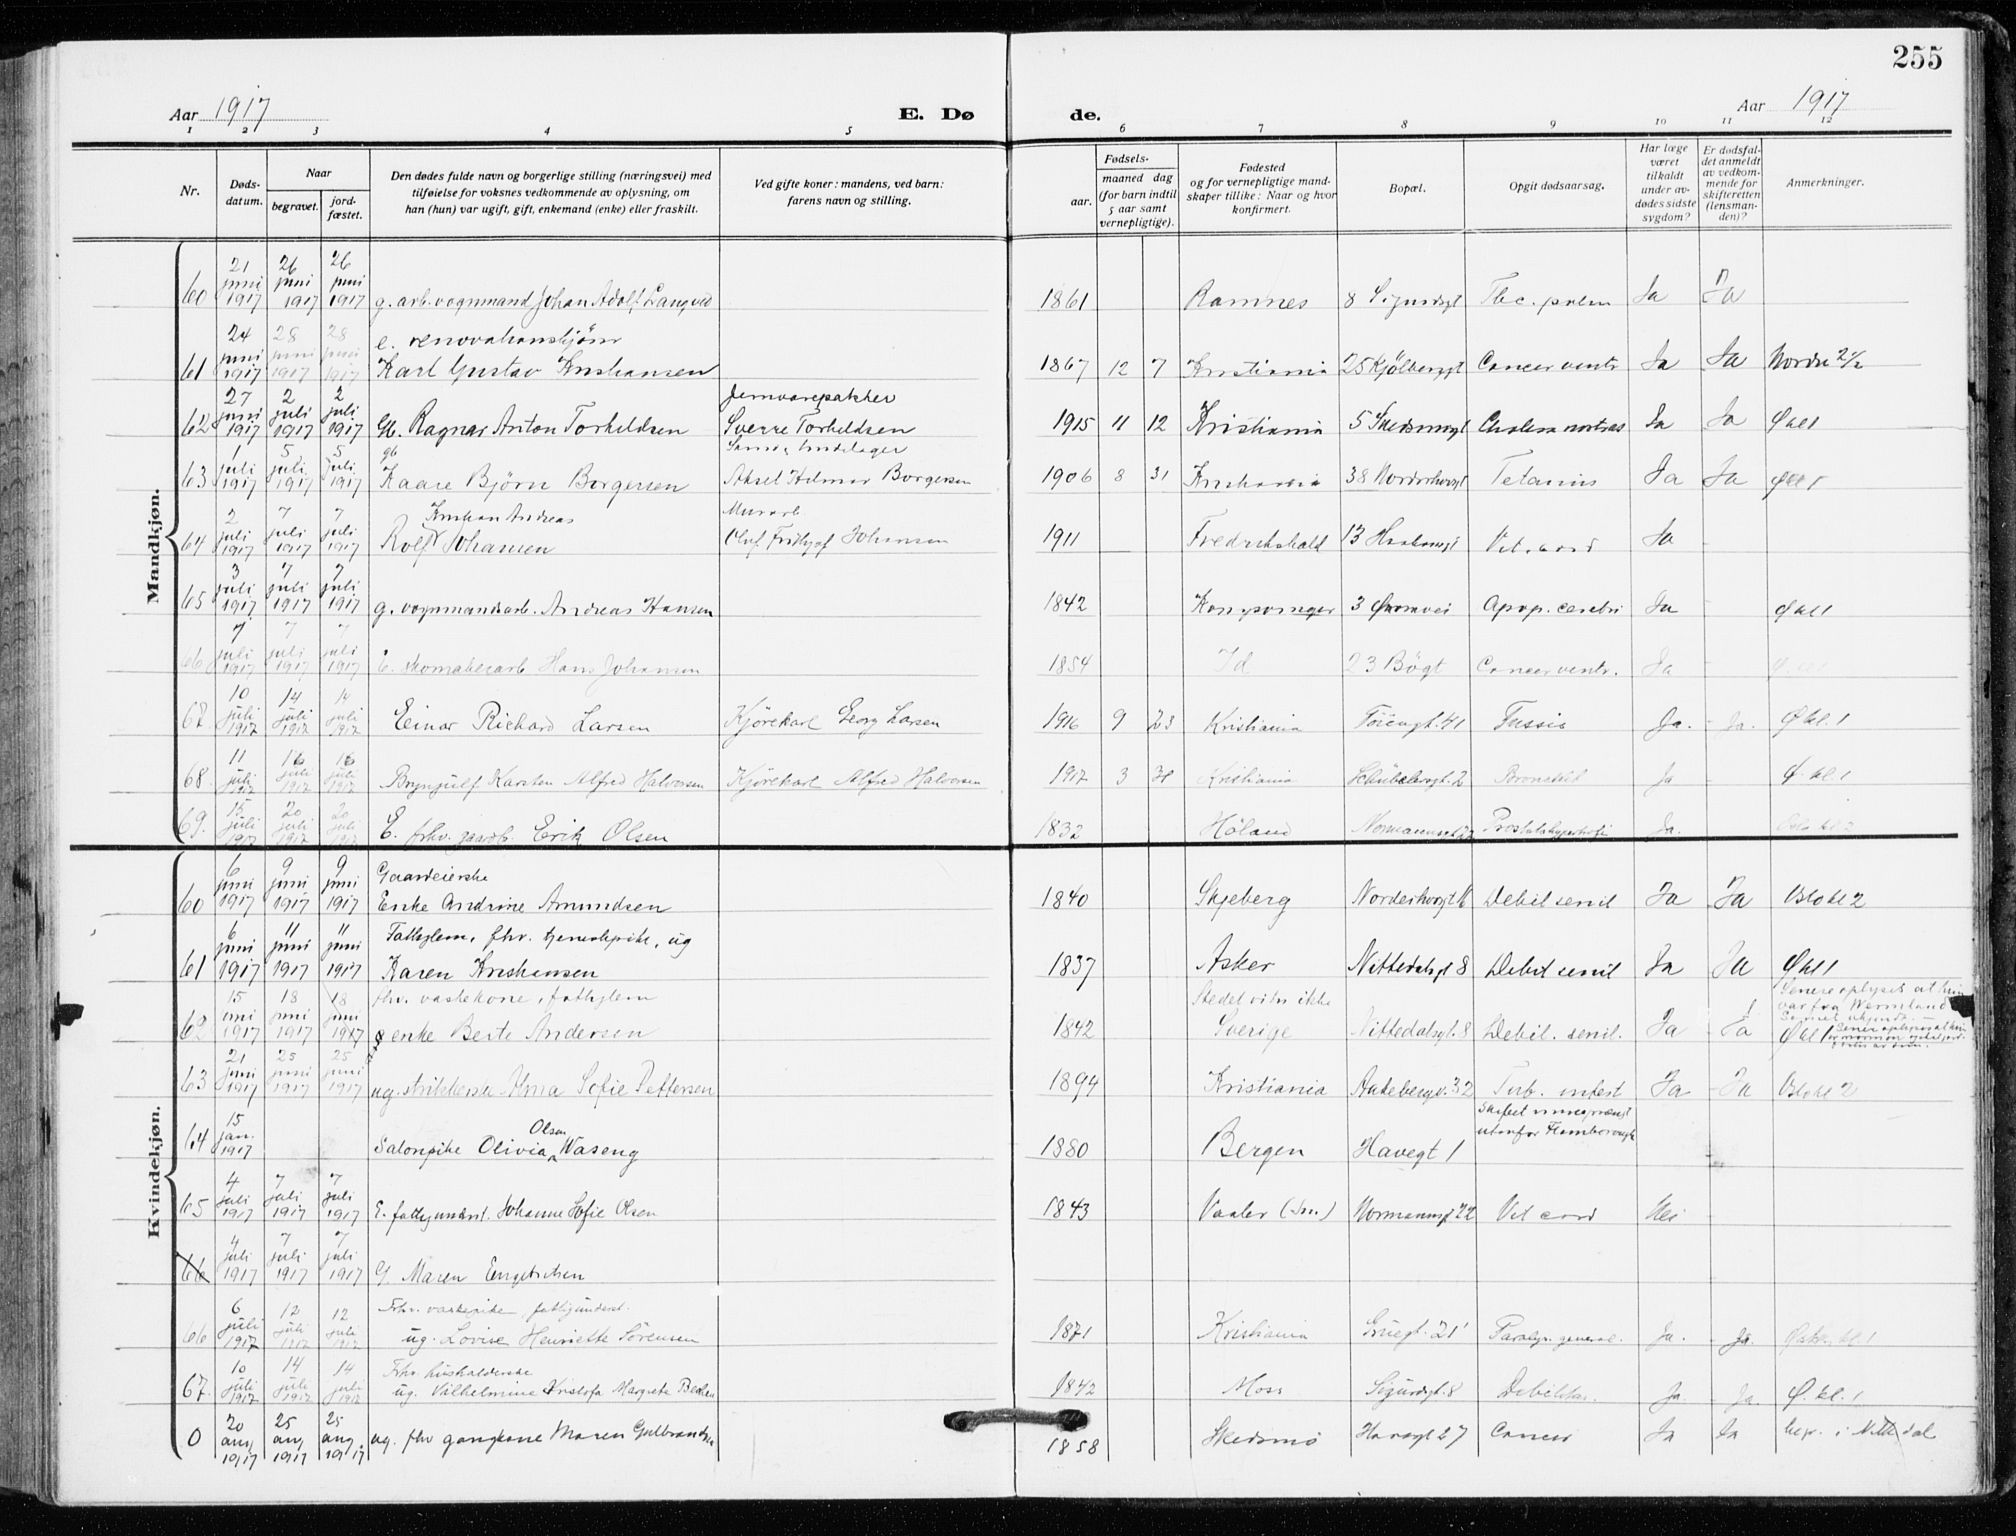 255
Aar 1917 E. Dø de. Aar 1917
1 2 3 4 5 6 7 8 9 10 11 12
Nr.
Døds-
datum.
Naar
begravet.
jord-
fæstet.
Den dødes fulde navn og borgerlige stilling (næringsvei) med
tilføielse for voksnes vedkommende av oplysning, om
han (hun) var ugift, gift, enkemand (enke) eller fraskilt.
Ved gifte koner: mandens, ved barn:
farens navn og stilling.
Fødsels-
aar.
maaned dag
(for barn indtil
5 aar samt
vernepligtige).
Fødested
og for vernepligtige mand-
skaper tillike: Naar og hvor
konfirmert.
Bopæl.
Opgit dødsaarsag.
Har læge
været
tilkaldt
under av-
dødes sidste
sygdom?
Er dødsfal-
det anmeldt
av vedkom-
mende for
skifteretten
(lensman-
den)?
Anmerkninger.
Mandkjøn.
60 21 juni 1917 26 juni 1917 26 juni 1917 g. arb. vognmand Johan Adolf Langved 1861 Ramnes 8 Sigurdsgt Tbc. pulm Ja Ja
61 24 juni 1917 28 juni 1917 28 juni 1917 e. renovationskjører
Karl Gustav Kristiansen 1867 12 7 Kristiania 25 Kjølberggt Cancer ventr Ja Ja Nordre
62 27 juni 1917 2 juli 1917 2 juli 1917 Gb. Ragnar Anton Torkildsen Jernvarepakker
Sverre Torkildsen 1915 11 12 Kristiania 5 Skedsmogt Cholera nostras Ja Ja Ø kl 1
63 1 juli 1917 5 juli 1917 5 juli 1917 gb
Kaare Bjørn Borgersen Aksel Hilmar Borgersen 1906 8 31 Kristiania 38 Nordrehovgt Tetanus Ja Ja Ø kl 1
64 2 juli 1917 7 juli 1917 7 juli 1917 Kristian Andreas
Rolf Johansen Murarb
Oluf Fridtjof Johansen 1911 Fredrikshald 13 Vit. cord Ja
65 3 juli 1917 7 juli 1917 7 juli 1917 g. vognmandsarb. Andreas Hansen 1842 Kongsvinger 3 Apop. cerebri Ja - Ø kl 1
66 7 juli 1917 7 juli 1917 7 juli 1917 E. skomakerarb Hans Johansen 1854 Id 23 Bøgt Cancer ventr. Ja -
67 10 juli 1917 14 juli 1917 14 juli 1917 Einar Richard Larsen Kjørekarl Georg Larsen 1916 9 23 Kristiania Tøiengt. 41 Tussis Ja. - Ja. Ø kl. 1
68. 11 juli 1917 16 juli 1917 16 juli 1917 Brynjulf Karsten Alfred Halvorsen Kjørekarl Alfred Halvorsen 1917 3 Kristiania Schübelersgt. 2 Ja - Ø. kl. 1
69. 15 juli 1917 20 juli 1917 20 juli 1917 E. fhv. gaardb. Erik Olsen 1832 Høland Normannsgt 22 Ja. Oslo kl 2
Kvindekjøn.
60 6 juni 1917 9 juni 1917 9 juni 1917 Gaardeierske
Enke Andrine Amundsen 1840 Skjeberg Nordrehovgt Debil senil Ja Ja Oslo kl 2
61 6 juni 1917 11 juni 1917 11 juni 1917 Fattiglem, fhv. tjenestepike, ug
Karen Kristiansen 1837 Asker Nittedalsgt 8 Debil senil Ja Ja Ø kl 1
62 15 juni 1917 18 juni 1917 18 juni 1917 fhv. vaskekone, fattiglem
enke Berte Andersen 1842 Stedet vites ikke
Sverige Nittedalsgt. 8 Debil. senil. Ja - Ja Senere oplyst at hun
var fra Wermland
Ø kl 1
63 21 juni 1917 25 juni 1917 25 juni 1917 ug. strikkerske Alma Sofie Pettersen 1894 Kristiania Ankebergv. 32 Tub. intest Ja - Ja Oslo kl 2
64 15 jan. 1917 Salonpike Olivia Olsen Waseng 1880 Bergen Havegt 1 Skibet minesprængt
utenfor Flamborough
65 4 juli 1917 7 juli 1917 7 juli 1917 E. fattigunderst. Johanne Sofie Olsen 1843 Vaaler (Sm.) Normannsgt 22 Vit cord Nei
66 4 juli 1917 7 juli 1917 7 juli 1917 G. Maren Engebretsen
66 6 juli 1917 12 juli 1917 12 juli 1917 Fhv. vaskepike, fattigunderst.
ug. Lovise Henriette Sørensen 1871 Kristiania Gruegt. 21 Paralys. general. Ja. - Ja. Ø kl. 1
67. 10 juli 1917 14 juli 1917 14 juli 1917 Fhv. husholderske
ug. Vilhelmine Kristofa Margrete 1842 Moss Sigurdsgt. 8 Ja - Ja. Ø. kl. 1
0 20 aug 1917 25 aug 1917 25 aug. 1917 ug. fhv gangkone Maren Gulbrandsen 1858 Skedsmo Havegt 27 Cancer Ja Ja begr. i Nittedal